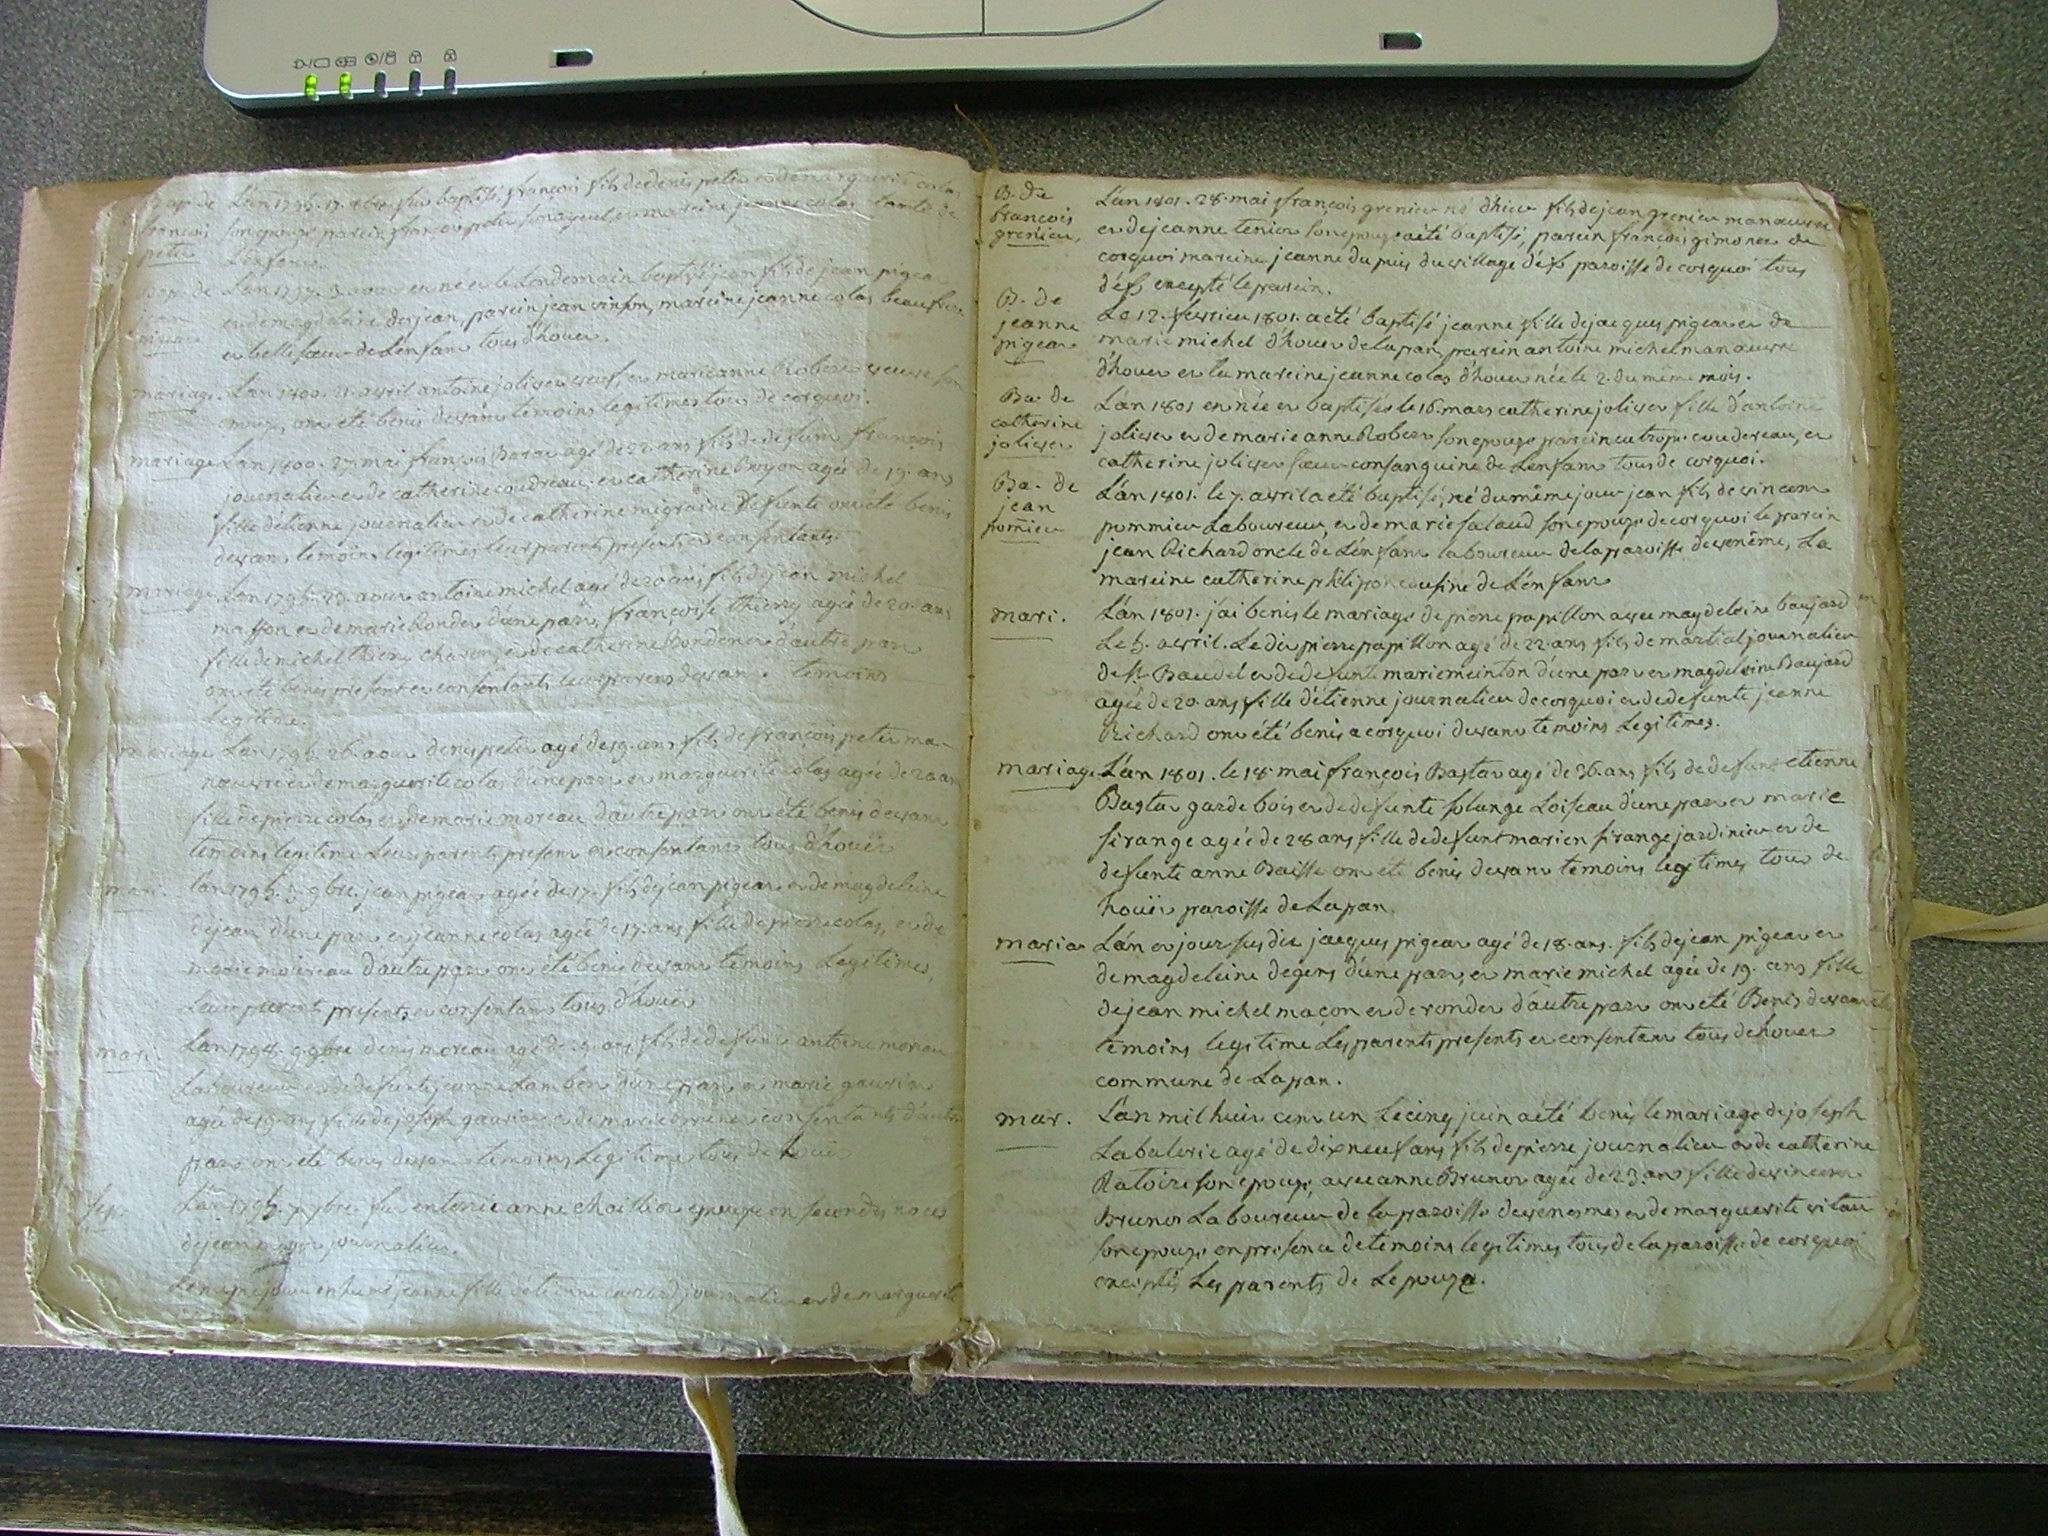 Bap. de
françois
petit
L'an 1796. 17. 8bre. fut baptisé françois fils de denis petit et de marguerite colas
son epouse parein françois petit son ayeul, et mareine jeanne colas tante de
L'enfant.
Bap. de
jean
pigeat
L'an 1797. 3. aout en né et le Londemain baptisé jean fils de jean pigeat
et de magdeleine dejean, parein jean vinson, mareine jeanne colas beaufrere
et belle soeur de L'enfant tous d'houet.
mariage. L'an 1800. 21. avril antoine jolivet veuf, et marieanne Robert veuve
ont été benis devant temoins legitimes tous de corquoi.
mariage L'an 1800. 27. mai françois Barat agé de 22. ans fils de defunt françois
journalier et de catherine coudreau. et catherine Broyon agée de 19. ans
fille d'étienne journalier et de catherine migraine defunte ont été benis
devant temoins legitimes leurs parents presents et consentants.
mariage L'an 1796. 23. aout antoine michel agé de 20 ans fils de jean michel
masson et de marie Rondet d'une part, françoise thierry agée de 20. ans
fille de michel thierry et de catherine d'autre part
ont été benis present et consentants leurs parens devant temoins
Legitime.
mariage L'an 1796. 26. aout denis petit agé de 19. ans fils de françois petit ma-
nœuvre et de marguerite colas d'une part et marguerite colas agée de 20 ans
fille de pierre colas et de marie moreau d'autre part ont été benis devant
temoins legitime Leurs parents present et consentant tous d'houët
mari. L'an 1796. 3. 9bre. jean pigeat agée de 17. fils de jean pigeat et de magdeleine
dejean d'une part et jeanne colas agé de 17. ans fille de pierre colas, et de
marie moireau d'autre part ont été benis devant temoins Legitimes,
Leurs parents presents et consentant tous d'houët
mari. L'an 1798. 9. 9bre denis moreau agé de ans fils de defunt antoine moreau
Laboureur et de defunte jeanne Lambert d'une part et marie gaurin
agée de 19. ans fille de joseph gaurin et de marie brunet consentants d'autre
part ont été benis devant temoins legitime tous de houët
Sep. L'an 1796. 7. 7bre. fut enterré anne chaillou epouse en secondes noces
dejean journalier.
Le meme jour enterré jeanne fille d'étienne journalier et de marguerite
B. de
françois
grenier,
L'an 1801. 28. mai françois grenier né d'hier fils de jean grenier manœuvre
et de jeanne tenier son epouse a été baptisé, parein françois gimonet de
corquoi mareine jeanne dupuis du village d'és paroisse de corquoi tous
d'és excepté le parein.
B. de
jeanne
pigeat
Le 12. fevrier 1801. a été baptisé jeanne fille de jacques pigeat et de
marie michel d'houet de lapan, parein antoine michel manœuvre
d'houet et la mareine jeanne colas d'houet née le 2. du même mois.
Ba. de
catherine
jolivet
L'an 1801 en née et baptisée le 16. mars catherine jolivet fille d'antoine
jolivet et de marie anne Robert son epouse parein eutrope coudereau, et
catherine jolivet sœur consanguine de L'enfant tous de corquoi.
Ba. de
jean
pomier
L'an 1801. le 7. avril a été baptisé, né du même jour jean fils de vincent
pommier Laboureur, et de marie salaud son epouse de corquoi le parein
jean Richard oncle de L'enfant laboureur de la paroisse de venême, La
mareine catherine philipon cousine de L'enfant
mari. L'an 1801. j'ai benis le mariage de pierre papillon avec magdeleine baujard
Le 5. avril. Le dit pierre papillon agé de 22. ans fils de martial journalier
de St. Baudel et de defunte marie meinton d'une part et magdeleine Baujard
agée de 20. ans fille d'étienne journalier de corquoi et de defunte jeanne
Richard ont été benis a corquoi devant temoins Legitimes.
mariage L'an 1801. le 18. mai françois Bastat agé de 36. ans fils de defunt etienne
Bastat gardebois et de defunte solange Loiseau d'une part et marie
firange agée de 28 ans fille de defunt marien firange jardinier et de
defunte anne Baisse ont été benis devant temoins legitimes tous de
houët paroisse de Lapan
maria L'an et jour susdit jacques pigeat agé de 18. ans. fils de jean pigeat et
de magdeleine degens d'une part, et marie michel agée de 19. ans fille
de jean michel maçon et de rondet d'autre part ont été Benis devant
temoins legitime Les parents presents et consentant tous de houet
commune de Lapan.
mar. L'an mil huit cent un Le cinq juin a été benis le mariage de joseph
Labalerie agé de dixneuf ans fils de pierre journalier et de catherine
Ratoire son epouse, avec anne Brunet agée de 23. ans fille de vincent
Brunet Laboureur de la paroisse de venesmes et de marguerite vitau
son epouse en presence de temoins legitimes tous de la paroisse de corquoi
exceptés Les parents de Lepouze.